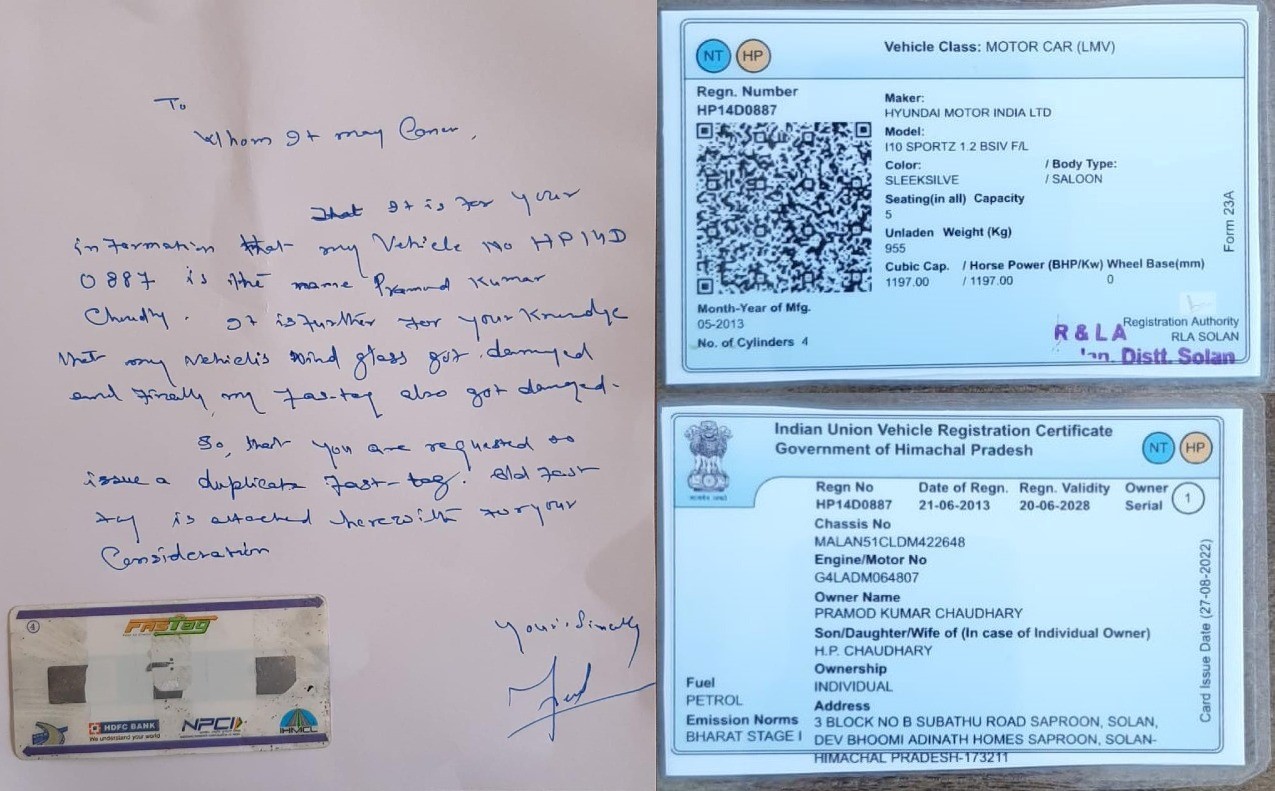 To
Whom It may Concern,
That It is for your
information that my Vehicle No HP14D
0887 is the name Pramod Kumar
Chaudhy. It is further for your Knowledge
that my vehicle's Wind glass got damaged
and Finally my Fas-tag also got damaged.
So, that you are requested to
issue a duplicate Fast-tag. Old Fast
tag is attached herewith for your
Consideration
Yours Sincerely
4
FASTag
HDFC BANK
We understand your world
NPCI
IHMCL
NT HP
Vehicle Class: MOTOR CAR (LMV)
Regn. Number
HP14D0887
Maker:
HYUNDAI MOTOR INDIA LTD
Model:
I10 SPORTZ 1.2 BSIV F/L
Color: / Body Type:
SLEEKSILVE / SALOON
Seating(in all) Capacity
5
Unladen Weight (Kg)
955
Cubic Cap. / Horse Power (BHP/Kw) Wheel Base(mm)
1197.00 / 1197.00 0
Form 23A
Month-Year of Mfg.
05-2013
No. of Cylinders 4
Registration Authority
RLA SOLAN
R & LA
Distt. Solan
Indian Union Vehicle Registration Certificate
Government of Himachal Pradesh
NT HP
Regn No Date of Regn. Regn. Validity Owner
HP14D0887 21-06-2013 20-06-2028 Serial 1
Chassis No
MALAN51CLDM422648
Engine/Motor No
G4LADM064807
Owner Name
PRAMOD KUMAR CHAUDHARY
Son/Daughter/Wife of (In case of Individual Owner)
H.P. CHAUDHARY
Ownership
INDIVIDUAL
Fuel
PETROL
Address
3 BLOCK NO B SUBATHU ROAD SAPROON, SOLAN,
Emission Norms
BHARAT STAGE I
DEV BHOOMI ADINATH HOMES SAPROON, SOLAN-
HIMACHAL PRADESH-173211
Card Issue Date (27-08-2022)